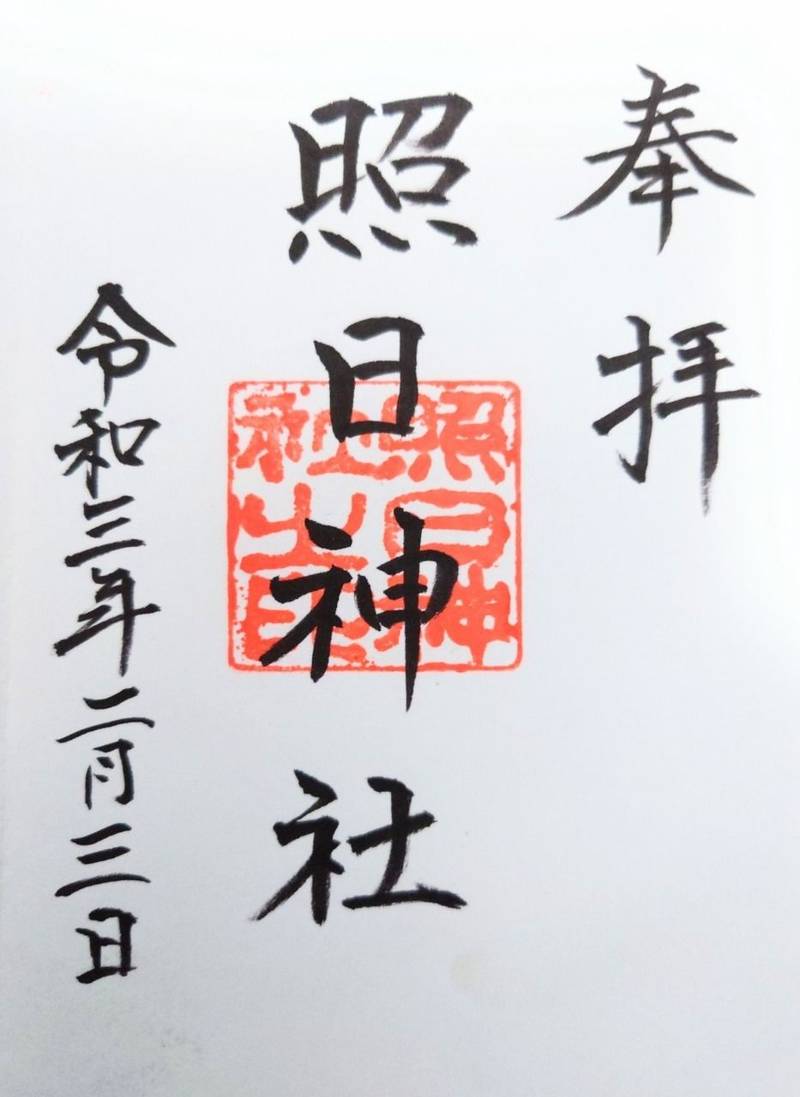 奉拝
照日神社
照日神
社之印
令和三年二月三日